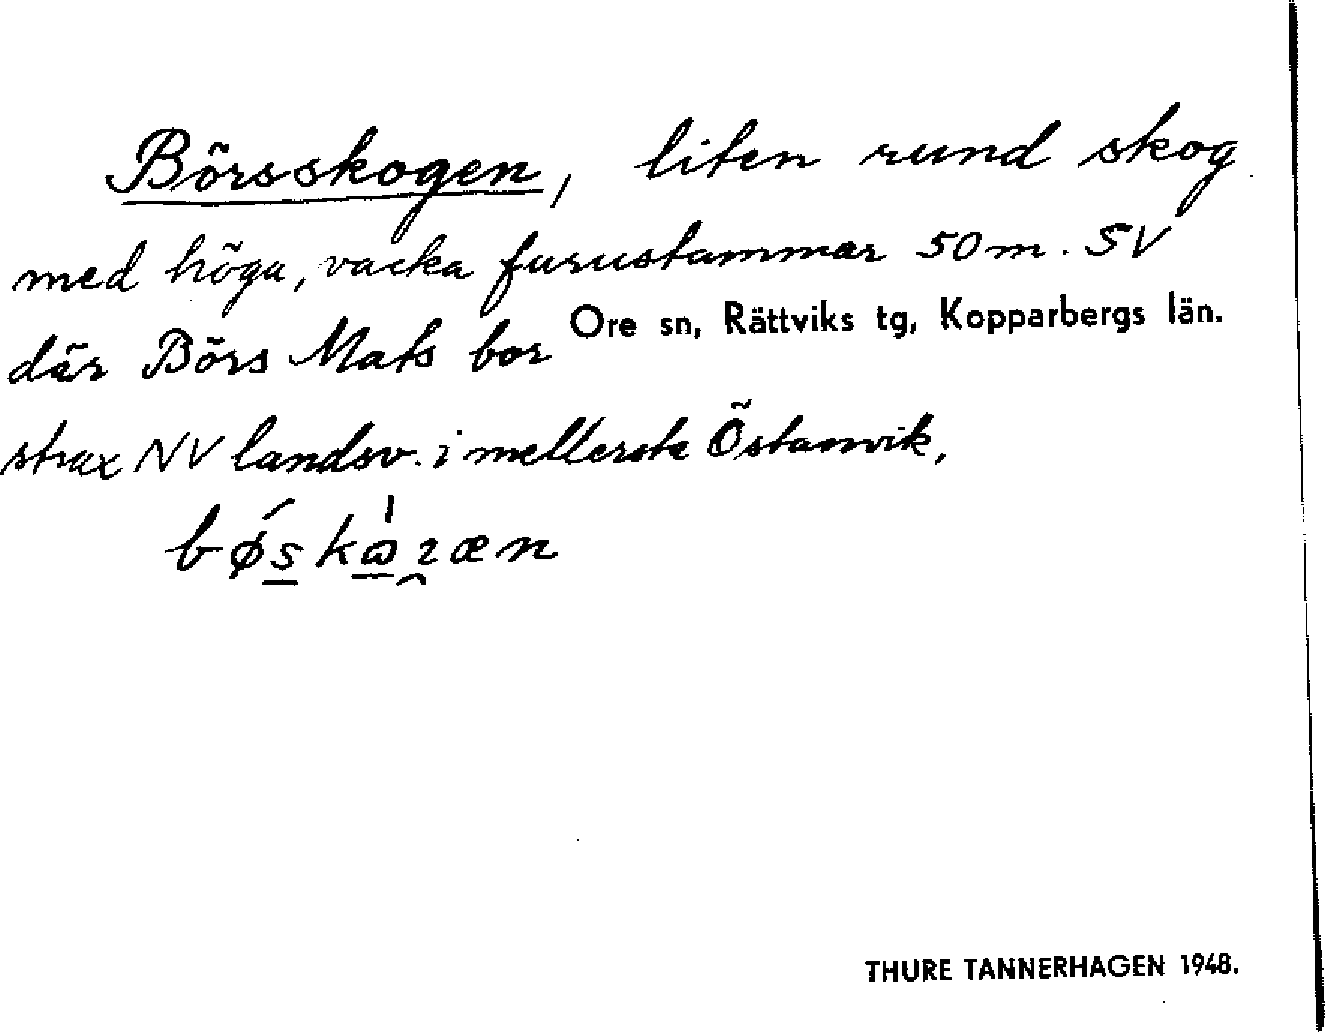 Börsskogen, liten rund skog
med höga, vacka furustammar 50 m. SV
Ore sn, Rättviks tg, Kopparbergs län.
där Börs Mats bor
strax NV landsv. i mellersta Östanvik,
THURE TANNERHAGEN 1948.